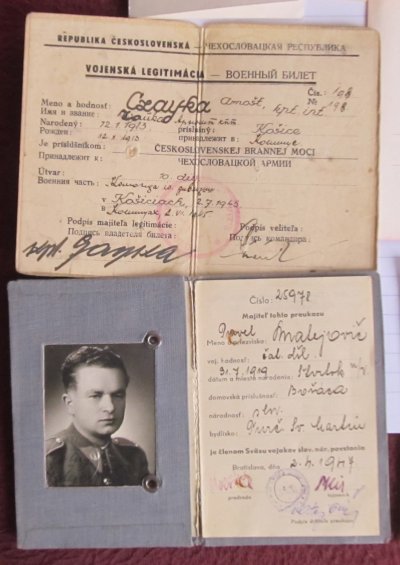 REPUBLIKA ČESKOSLOVENSKÁ — ЧЕХОСЛОВАЦКАЯ РЕСПУБЛИКА
VOJENSKÁ LEGITIMÁCIA — ВОЕННЫЙ БИЛЕТ
Čís.: 198
Meno a hodnosť: Arnošt,
№ 198
Имя и звание:
Narodený: 12.1.1913 príslušný: Košice
Рожден: 12.1.1913 принадлежит в:
Je príslušníkom: ČESKOSLOVENSKEJ BRANNEJ MOCI
Принадлежит к: ЧЕХОСЛОВАЦКОЙ АРМИИ
Útvar: 10. div
Военния часть:
v Košiciach, 2.7.1945
в
Podpis majiteľa legitimácie: Podpis veliteľa:
Подпись владетеля билета: Подпись командира:
Číslo: 25978
Majiteľ tohto preukazu
Pavel
Meno a priezvisko: Matejovič
voj. hodnosť: čat. dňl.
31.7.1919
dátum a miesto narodenia:
domovská príslušnosť: Bošaca
národnosť: slov.
bydlisko: Turč. Sv. Martin
je členom Sväzu vojakov slov. nár. povstania
Bratislava, dňa 2.4.1947
predseda tajomník
Podpis držiteľa preukazu